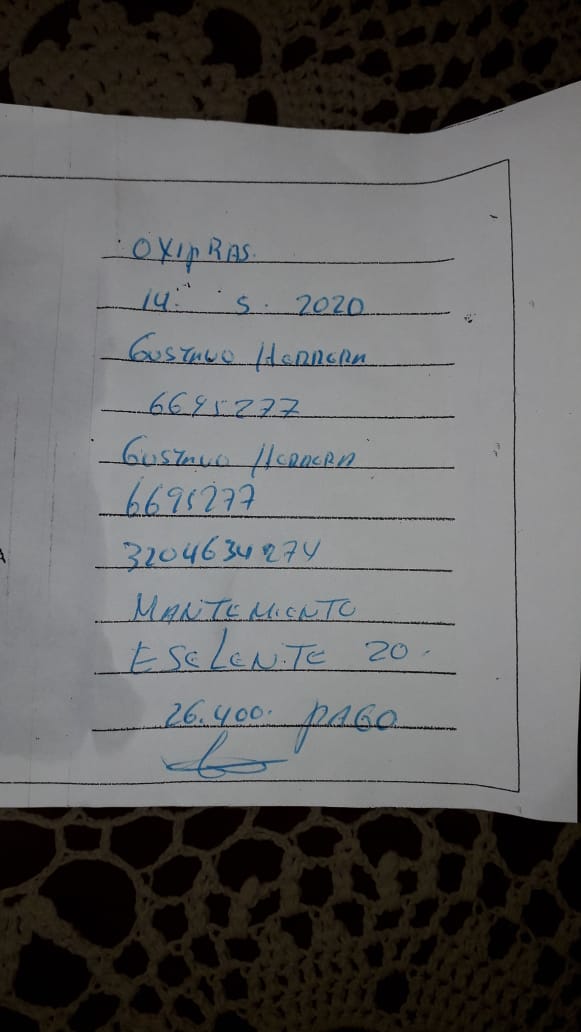 OXIPRAS.
14. 5. 2020
Gustavo Herrera
6695277
Gustavo Herrera
6695277
3204634274
MANTEMIENTO
ESELENTE 20.
26.400. PAGO